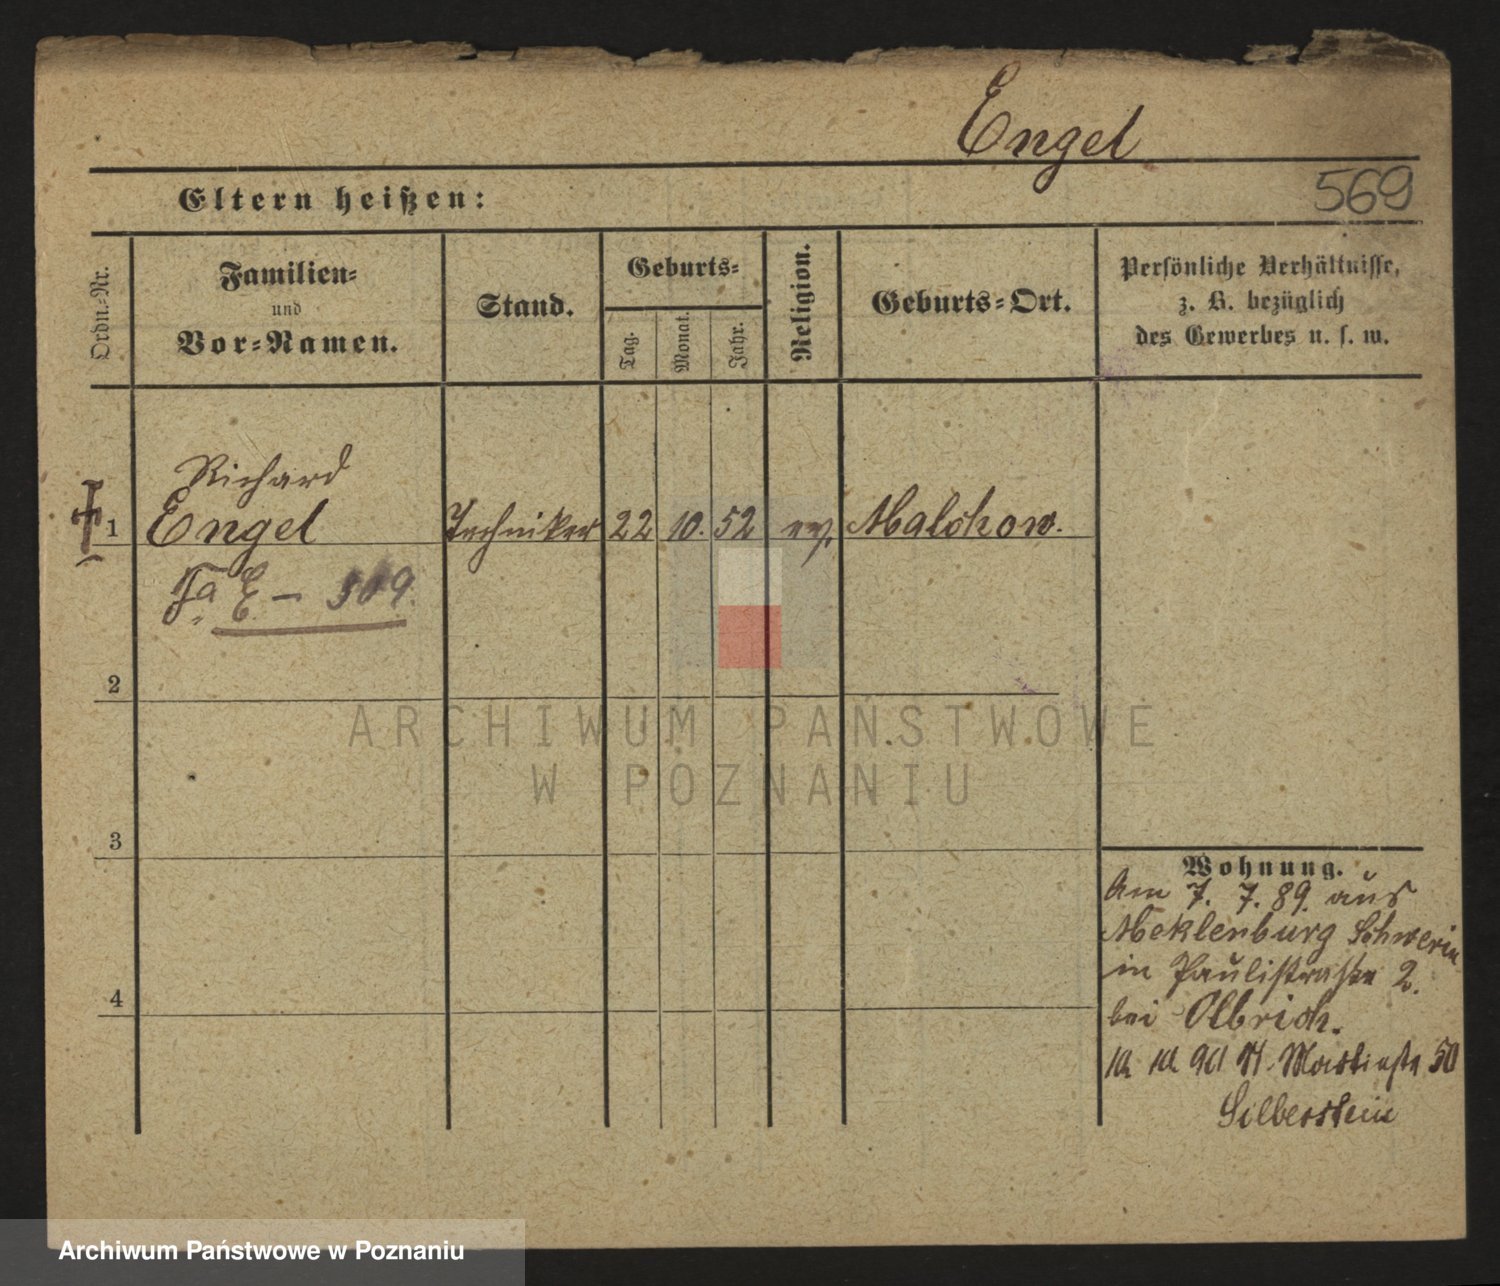 Engel
569
Eltern heißen:
Ordn.-Nr.
Familien-
und
Vor-Namen.
Stand.
Geburts-
Tag.
Monat.
Jahr.
Religion.
Geburts-Ort.
Persönliche Verhältnisse,
z. B. bezüglich
des Gewerbes u. s. w.
Richard
1 Engel Techniker 22 10. 52 ev. Malchow.
Fa. E –
2
3
4
Wohnung.
Am 7. 7. 89. aus
Meklenburg Schwerin
in Paulistraße 2.
bei Olbrich.
90 50
Silberstein
ARCHIWUM PAŃSTWOWE
W POZNANIU
Archiwum Państwowe w Poznaniu